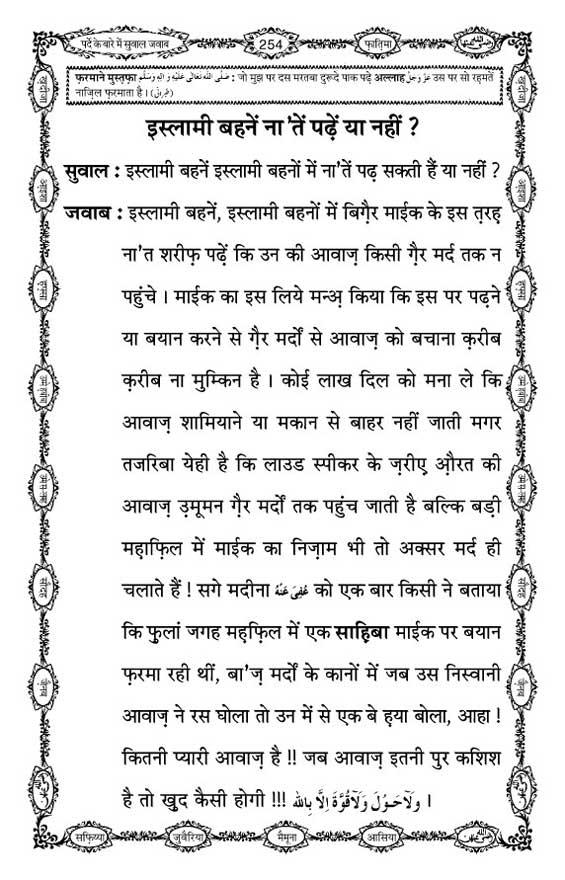 पर्दे के बारे में सुवाल जवाब
254
फ़ातिमा
फ़रमाने मुस्तफ़ा صَلَّى اللهُ تَعَالَى عَلَيْهِ وَاٰلِهٖ وَسَلَّم : जो मुझ पर दस मरतबा दुरूदे पाक पढ़े अल्लाह عَزَّوَجَلَّ उस पर सो रहमतें
नाज़िल फ़रमाता है । (طبرانی)
इस्लामी बहनें ना'तें पढ़ें या नहीं ?
सुवाल : इस्लामी बहनें इस्लामी बहनों में ना'तें पढ़ सकती हैं या नहीं ?
जवाब : इस्लामी बहनें, इस्लामी बहनों में बिग़ैर माईक के इस त़रह़
ना'त शरीफ़ पढ़ें कि उन की आवाज़ किसी ग़ैर मर्द तक न
पहुंचे । माईक का इस लिये मन्अ़ किया कि इस पर पढ़ने
या बयान करने से ग़ैर मर्दों से आवाज़ को बचाना क़रीब
क़रीब ना मुम्किन है । कोई लाख दिल को मना ले कि
आवाज़ शामियाने या मकान से बाहर नहीं जाती मगर
तजरिबा येही है कि लाउड स्पीकर के ज़रीए औ़रत की
आवाज़ उ़मूमन ग़ैर मर्दों तक पहुंच जाती है बल्कि बड़ी
मह़ाफ़िल में माईक का निज़ाम भी तो अक्सर मर्द ही
चलाते हैं ! सगे मदीना عُفِىَ عَنْهُ को एक बार किसी ने बताया
कि फुलां जगह मह़फ़िल में एक साह़िबा माईक पर बयान
फ़रमा रही थीं, बा'ज़ मर्दों के कानों में जब उस निस्वानी
आवाज़ ने रस घोला तो उन में से एक बे ह़या बोला, आहा !
कितनी प्यारी आवाज़ है !! जब आवाज़ इतनी पुर कशिश
है तो ख़ुद कैसी होगी !!! وَلَاحَوْلَ وَلَاقُوَّةَ اِلَّا بِاللّٰه ।
सफ़िय्या
जुवैरिया
मैमूना
आसिया